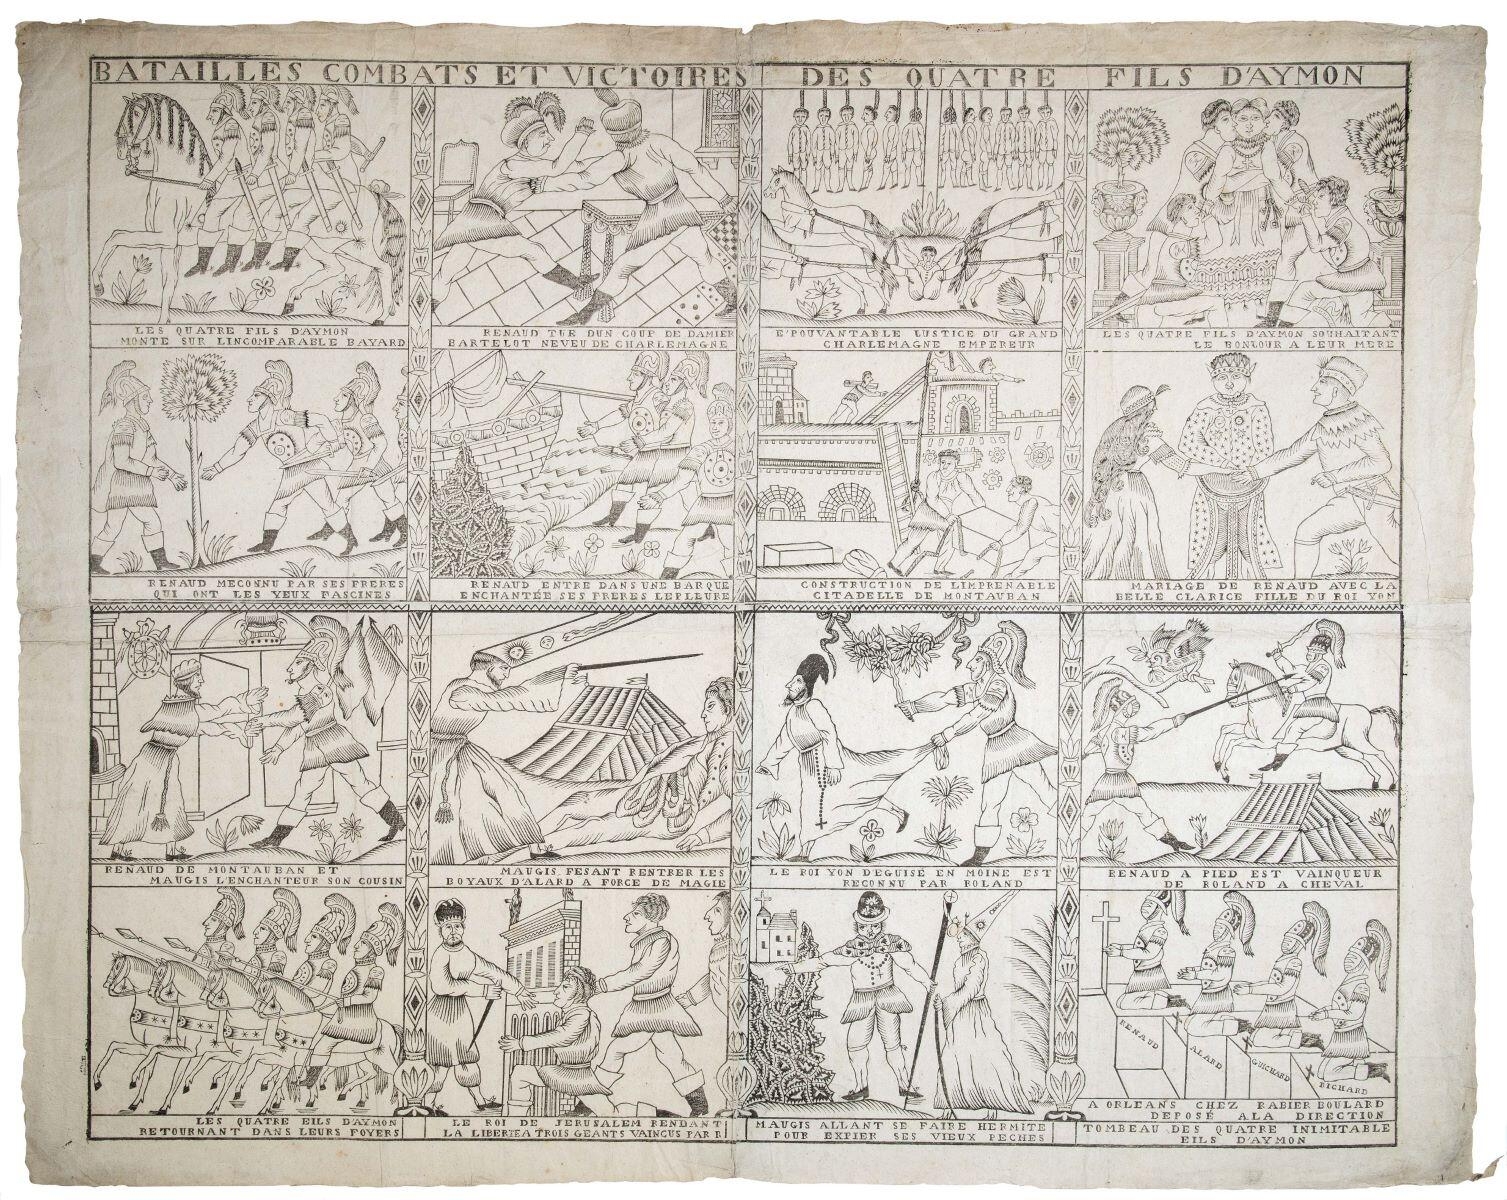 BATAILLES COMBATS ET VICTOIRES DES QUATRE FILS D'AYMON
LES QUATRE FILS D'AYMON
MONTE SUR L'INCOMPARABLE BAYARD
RENAUD TUE D'UN COUP DE DAMIER
BARTELOT NEVEU DE CHARLEMAGNE
E'POUVANTABLE IUSTICE DU GRAND
CHARLEMAGNE EMPEREUR
LES QUATRE FILS D'AYMON SOUHAITANT
LE BONIOUR A LEUR MERE
RENAUD MECONNU PAR SES FRERES
QUI ONT LES YEUX FASCINES
RENAUD ENTRE DANS UNE BARQUE
ENCHANTÉE SES FRERES LEPLEURE
CONSTRUCTION DE L'IMPRENABLE
CITADELLE DE MONTAUBAN
MARIAGE DE RENAUD AVEC LA
BELLE CLARICE FILLE DU ROI YON
RENAUD DE MONTAUBAN ET
MAUGIS L'ENCHANTEUR SON COUSIN
MAUGIS FESANT RENTRER LES
BOYAUX D'ALARD A FORCE DE MAGIE
LE ROI YON DEGUISE EN MOINE EST
RECONNU PAR ROLAND
RENAUD A PIED EST VAINQUEUR
DE ROLAND A CHEVAL
LES QUATRE FILS D'AYMON
RETOURNANT DANS LEURS FOYERS
LE ROI DE JERUSALEM RENDANT
LA LIBERTE A TROIS GEANTS VAINCUS PAR R
MAUGIS ALLANT SE FAIRE HERMITE
POUR EXPIER SES VIEUX PECHES
RENAUD
ALARD
GUICHARD
RICHARD
A ORLEANS CHEZ RABIER BOULARD
DEPOSÉ A LA DIRECTION
TOMBEAU DES QUATRE INIMITABLE
FILS D'AYMON